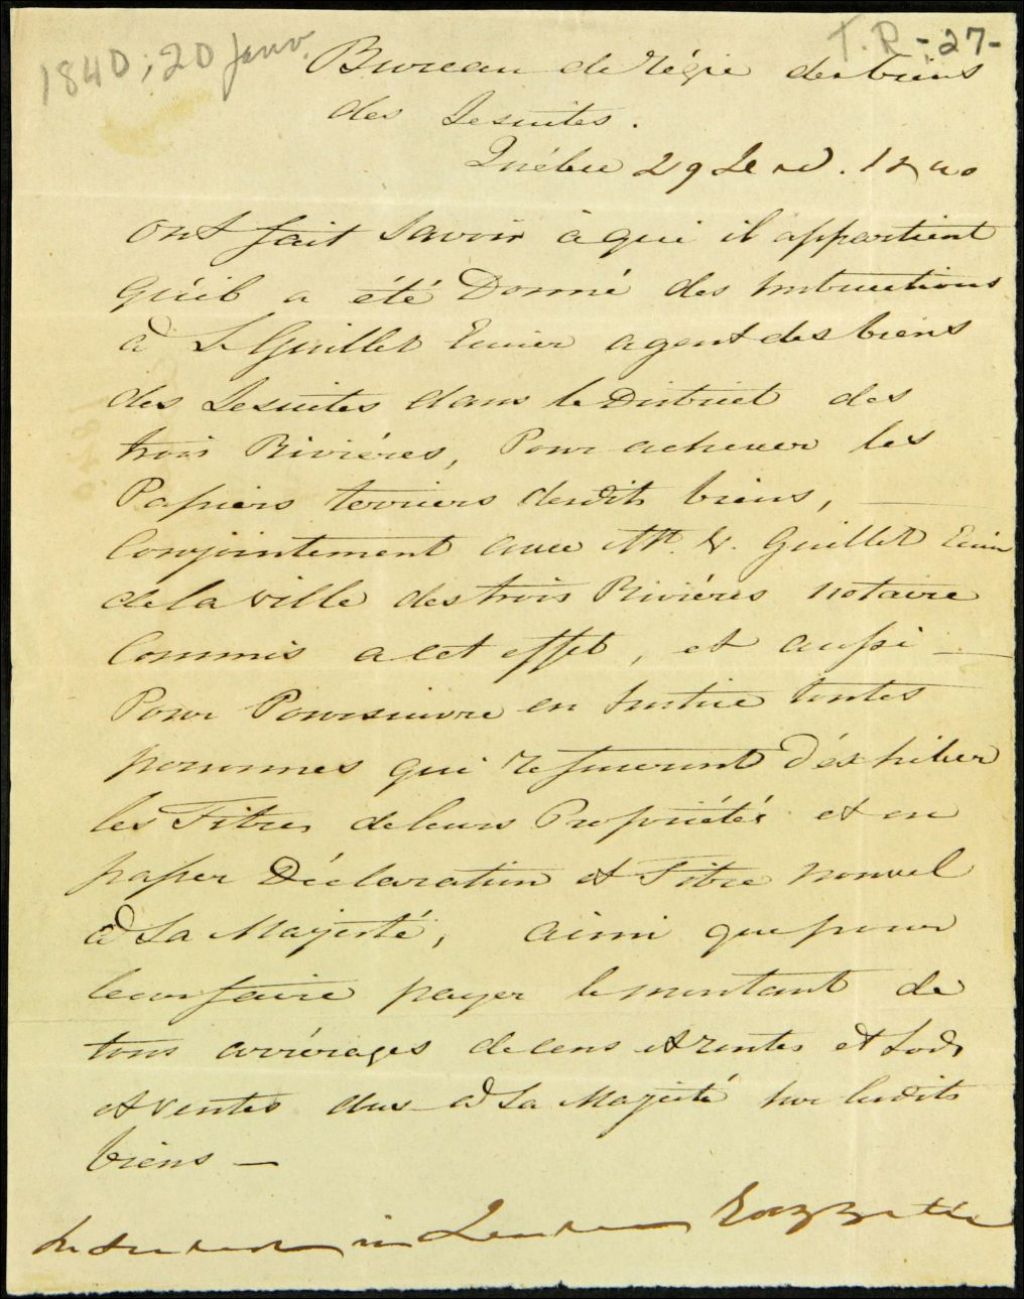 1840; 20 Janv. T.R.-27-
Bureau de régie des biens
des Jesuites.
Québec 29 1840
ont fait Savoir à qui il appartient
Qu'il a été Donné des Instructions
à L. Guillet Ecuier agent des biens
des Jesuites dans le District des
trois Riviéres, Pour achever les
Papiers terriers desdits biens,
Conjointement avec Mr. V. Guillet Ecuier
de la ville des trois Riviéres notaire
Commis a cet effet, et aussi
Pour Poursuivre en Justice toutes
personnes qui refuseront d'éxhiber
les Titres de leurs Propriétés et en
passer Déclaration et Titre nouvel
à Sa Majesté, ainsi que pour
leur faire payer le montant de
tous arrérages de cens et rentes et Lods
et ventes dus à Sa Majesté sur lesdits
biens —
in Gazzette